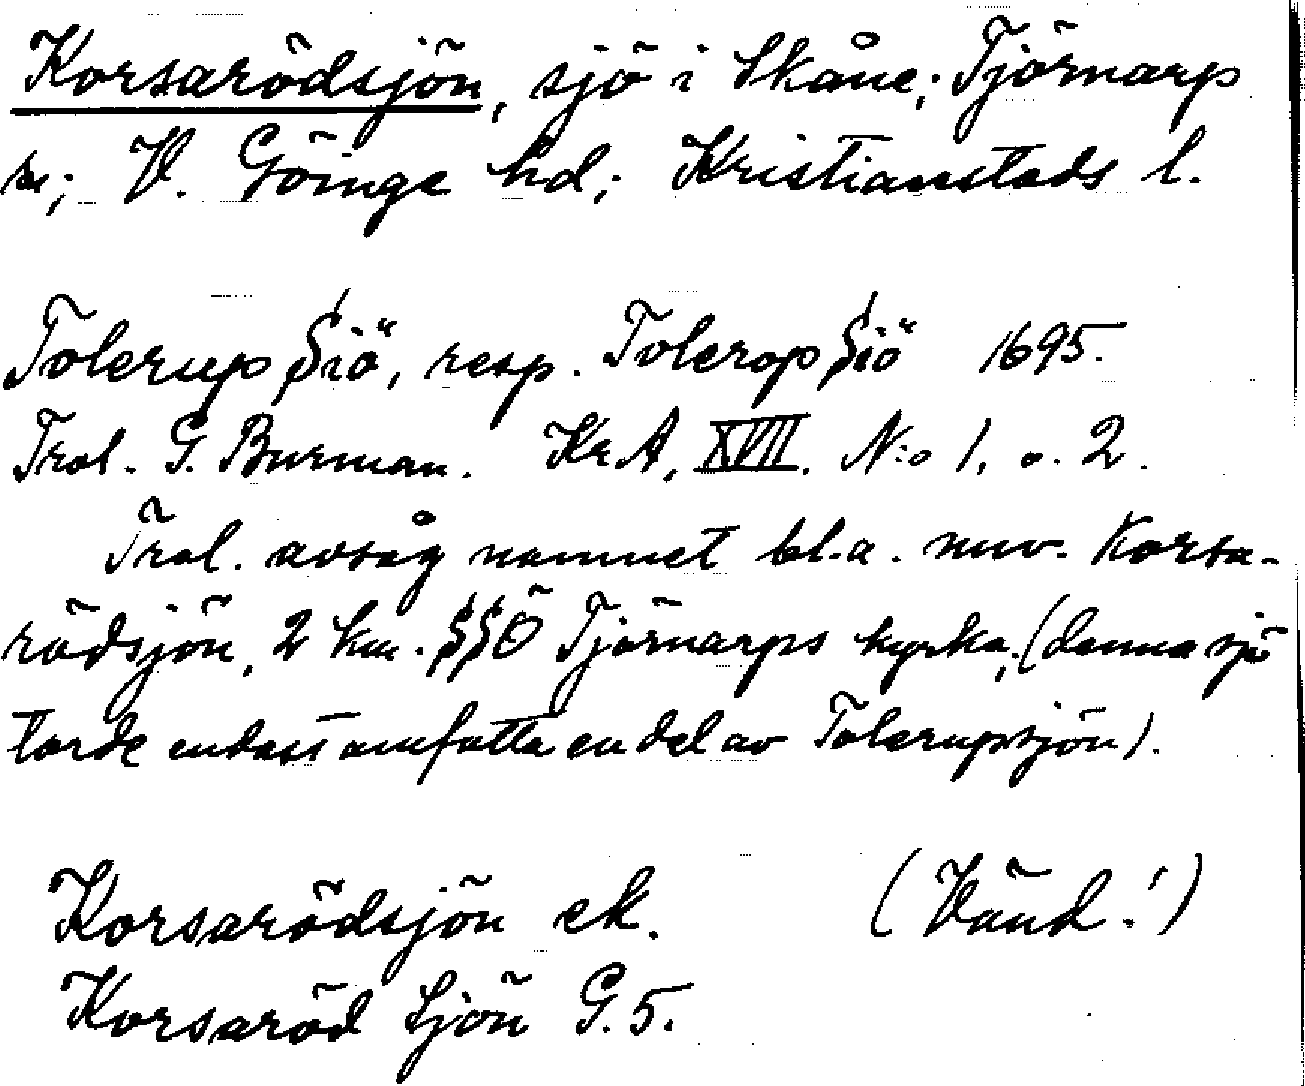 Korsarödsjön, sjö i Skåne; Tjörnarp
sn; V. Göinge hd; Kristianstads l.
Tolerup Siö, resp. Tolerop Siö 1695.
Trol. G. Burman. KrA, XVII. N:o 1, o. 2.
Trol. avsåg namnet bl.a. nuv. Korsa-
rödsjön, 2 km. SSÖ Tjörnarps kyrka, (denna sjö
torde endast omfatta en del av Tolerupsjön).
Korsarödsjön ek. (Vänd!)
Korsaröd Sjön G.5.